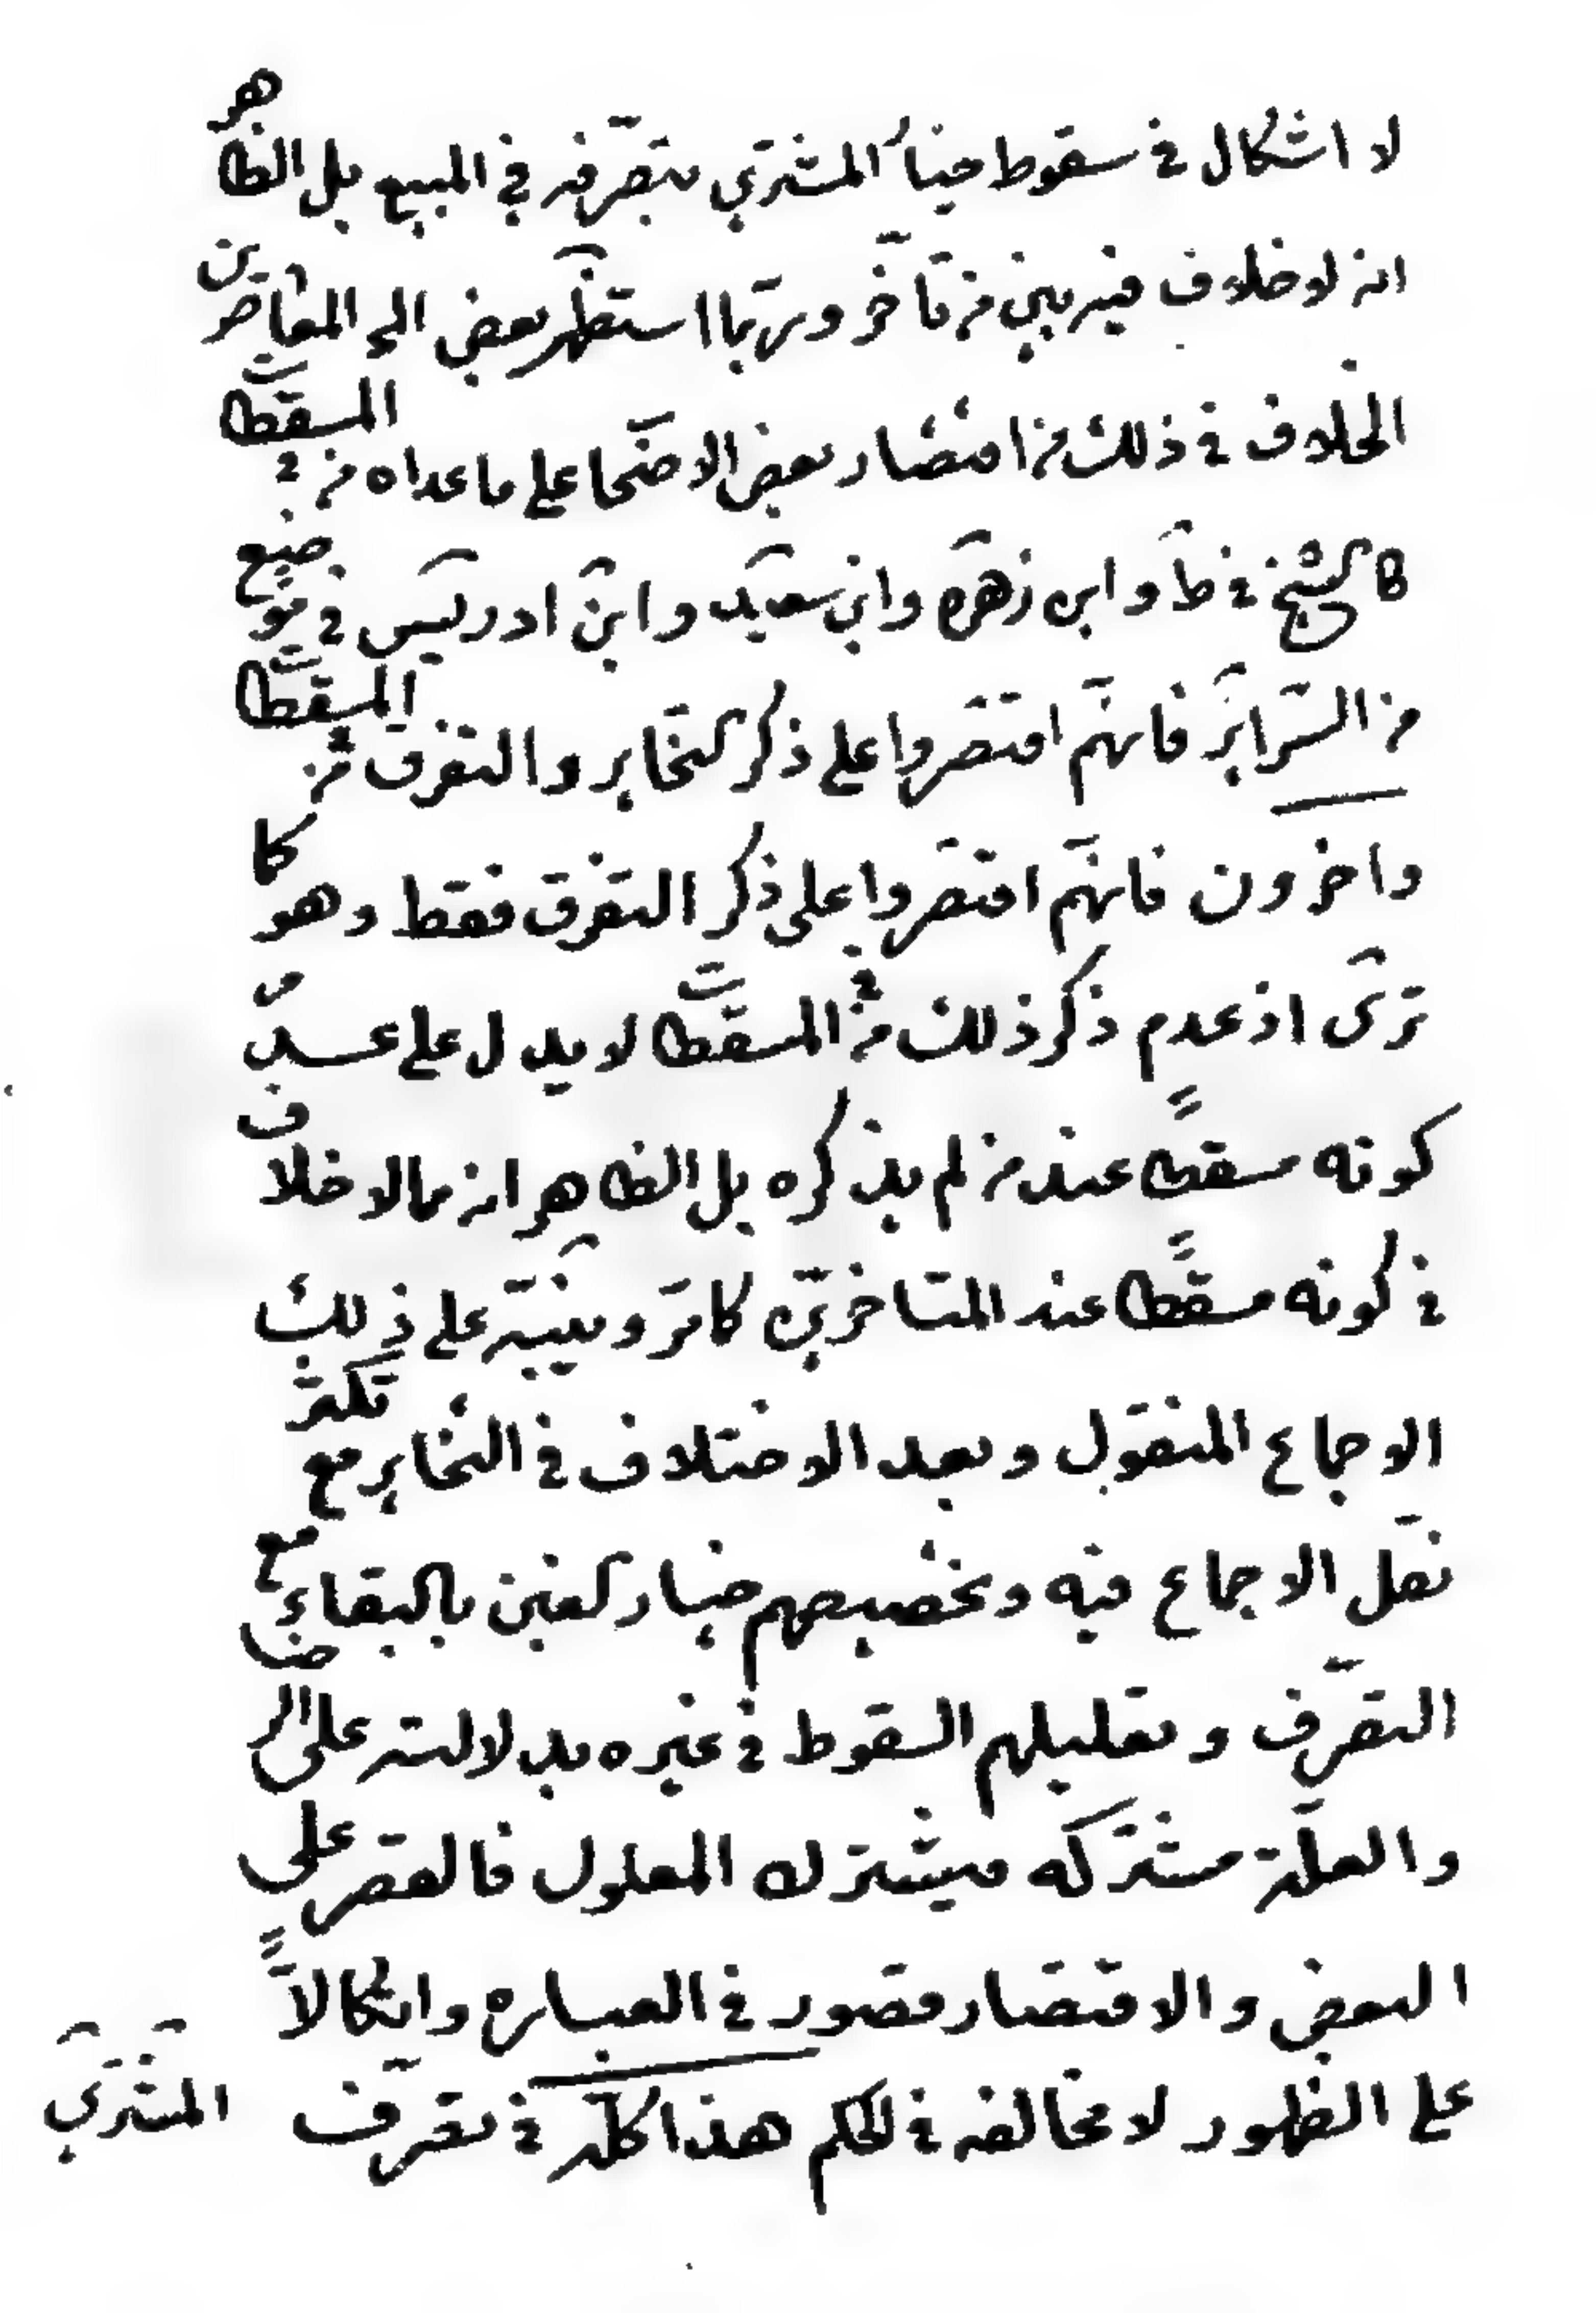 لا اشكال في سقوط خيار المشتري بتصرفه في المبيع بل الظاهر
انه لا خلاف فيه بين من تأخر وربما استظهر بعض المعاصرين
الخلاف في ذلك من اقتصار بعض الاصحاب على ما عداه من المسقطات
كالشيخ في ط وابن زهره وابن سعيد وابن ادريس في موضع
من السرائر فانهم اقتصروا على ذكر التخاير والتفرق من المسقطات
واخرون فانهم اقتصروا على ذكر التفرق فقط وهو كما
ترى اذ عدم ذكر ذلك من المسقطات لا يدل على عدم
كونه مسقطا عند من لم يذكره بل الظاهر انه مما لا خلاف
في كونه مسقطا عند المتاخرين كما مر وينبه على ذلك
الاجماع المنقول وبعد الاختلاف في التخاير مع تكثر
نقل الاجماع فيه وتخصيصهم خيار الغبن بالبقاء مع
التصرف وتعليلهم السقوط في غيره بدلالته على الرضا
والعلة مشتركه فيشترك المعلول فالقصر على
البعض والاقتصار قصور في العباره واتكالا
على الظهور لا مخالفه في الحكم هذا كله في تصرف المشتري